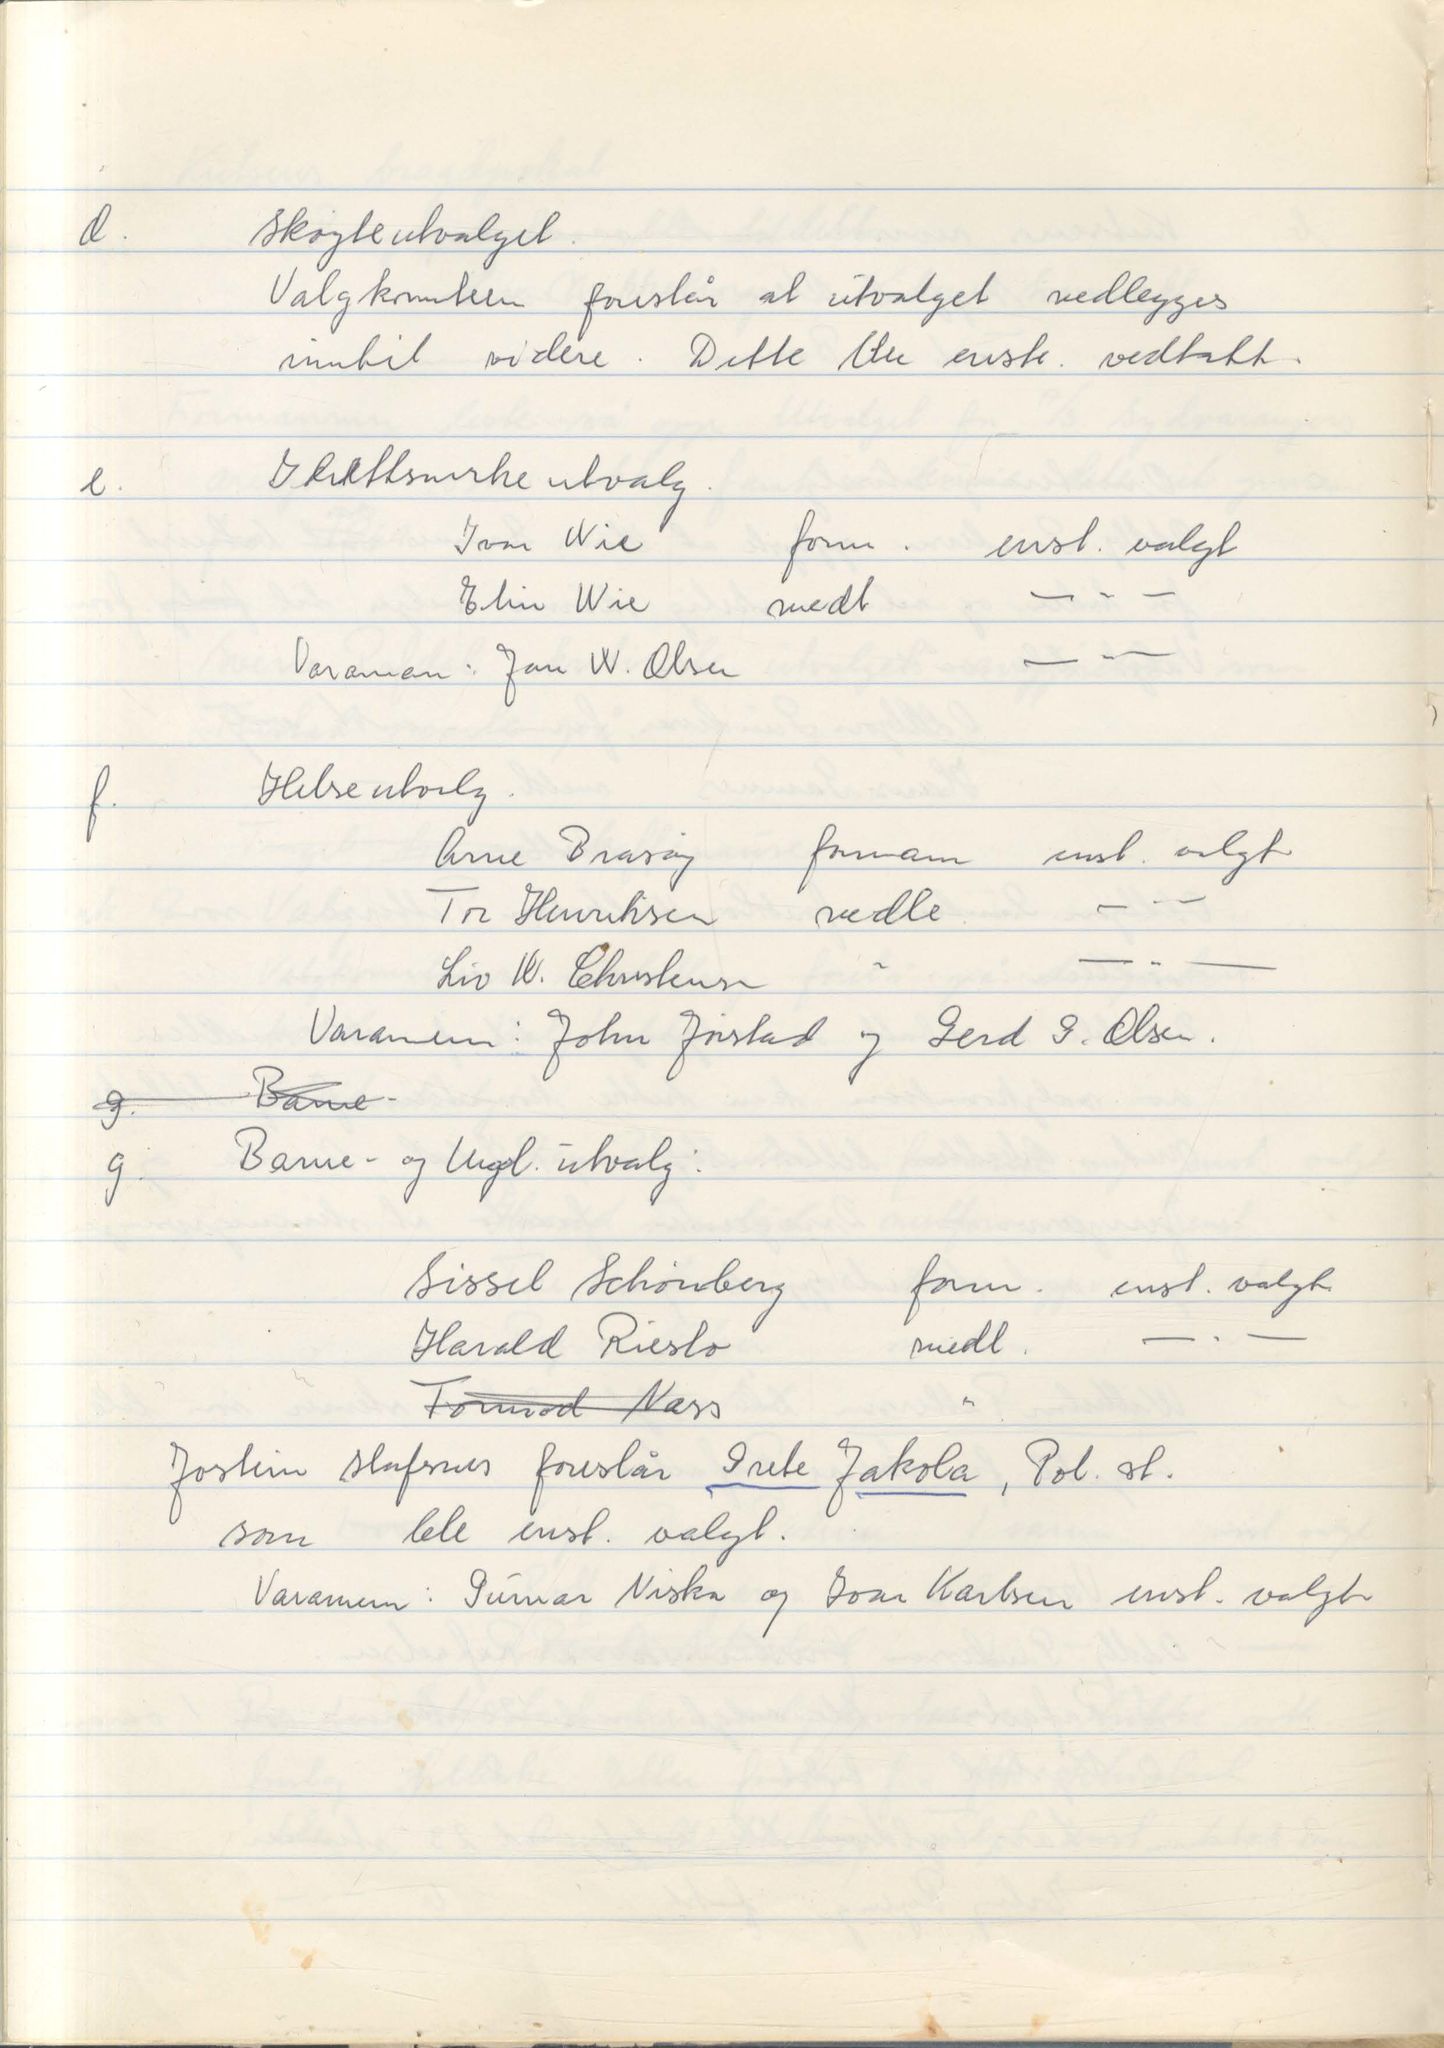 d. Skøyteutvalget.
Valgkomiteen foreslår at utvalget nedlegges
inntil videre. Dette ble enst. vedtatt.
e. Idrettsmerkeutvalg.
Ivar Wie form. enst. valgt
Elin Wie medl — " —
Varaman: Jan W. Olsen — " —
f. Helseutvalg.
Arne Brasøy formann enst. valgt
Tor Henriksen medl. — " —
Liv W. Christensen " — " —
Varamenn: John Jørstad og Gerd G. Olsen.
g. Barne-
g. Barne- og Ungd. utvalg:
Sissel Schönberg form. enst. valgt
Harald Riesto medl. — " —
Tormod Næss "
Jostein foreslår Grete Jakola, Pol. st.
som ble enst. valgt.
Varamenn: Gunnar Niska og Ivar Karlsen enst. valgt